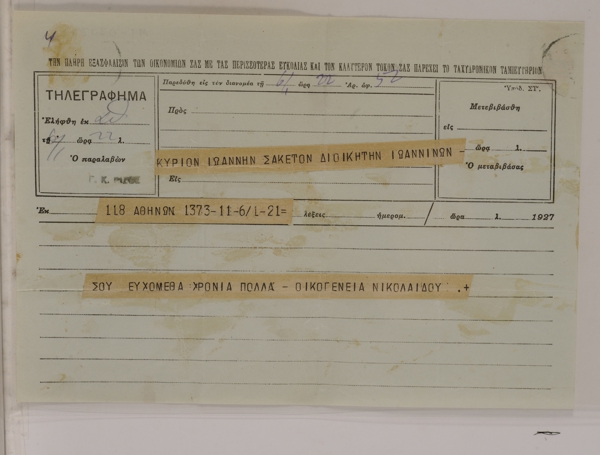 4
ΤΗΝ ΠΛΗΡΗ ΕΞΑΣΦΑΛΙΣΙΝ ΤΩΝ ΟΙΚΟΝΟΜΙΩΝ ΣΑΣ ΜΕ ΤΑΣ ΠΕΡΙΣΣΟΤΕΡΑΣ ΕΥΚΟΛΙΑΣ ΚΑΙ ΤΟΝ ΚΑΛΥΤΕΡΟΝ ΤΟΚΟΝ ΣΑΣ ΠΑΡΕΧΕΙ ΤΟ ΤΑΧΥΔΡΟΜΙΚΟΝ ΤΑΜΙΕΥΤΗΡΙΟΝ
ΤΗΛΕΓΡΑΦΗΜΑ
Ἐλήφθη ἐκ
τῇ 6/1 ὥρᾳ 22 1.
Ὁ παραλαβὼν
Παρεδόθη εἰς τὸν διανομέα τῇ 6/1 ὥρᾳ 22 Ἀρ. ἐφ. 52
Πρὸς
ΚΥΡΙΟΝ ΙΩΑΝΝΗΝ ΣΑΚΕΤΟΝ ΔΙΟΙΚΗΤΗΝ ΙΩΑΝΝΙΝΩΝ -
Εἰς
Ὑπόδ. ΣΤ.
Μετεβιβάσθη
εἰς
ὥρᾳ 1.
Ὁ μεταβιβάσας
Ἐκ 118 ΑΘΗΝΩΝ 1373-11-6/1-21= λέξεις ἡμερομ. / ὥρα 1. 1927
ΣΟΥ ΕΥΧΟΜΕΘΑ ΧΡΟΝΙΑ ΠΟΛΛΑ - ΟΙΚΟΓΕΝΕΙΑ ΝΙΚΟΛΑΙΔΟΥ .+